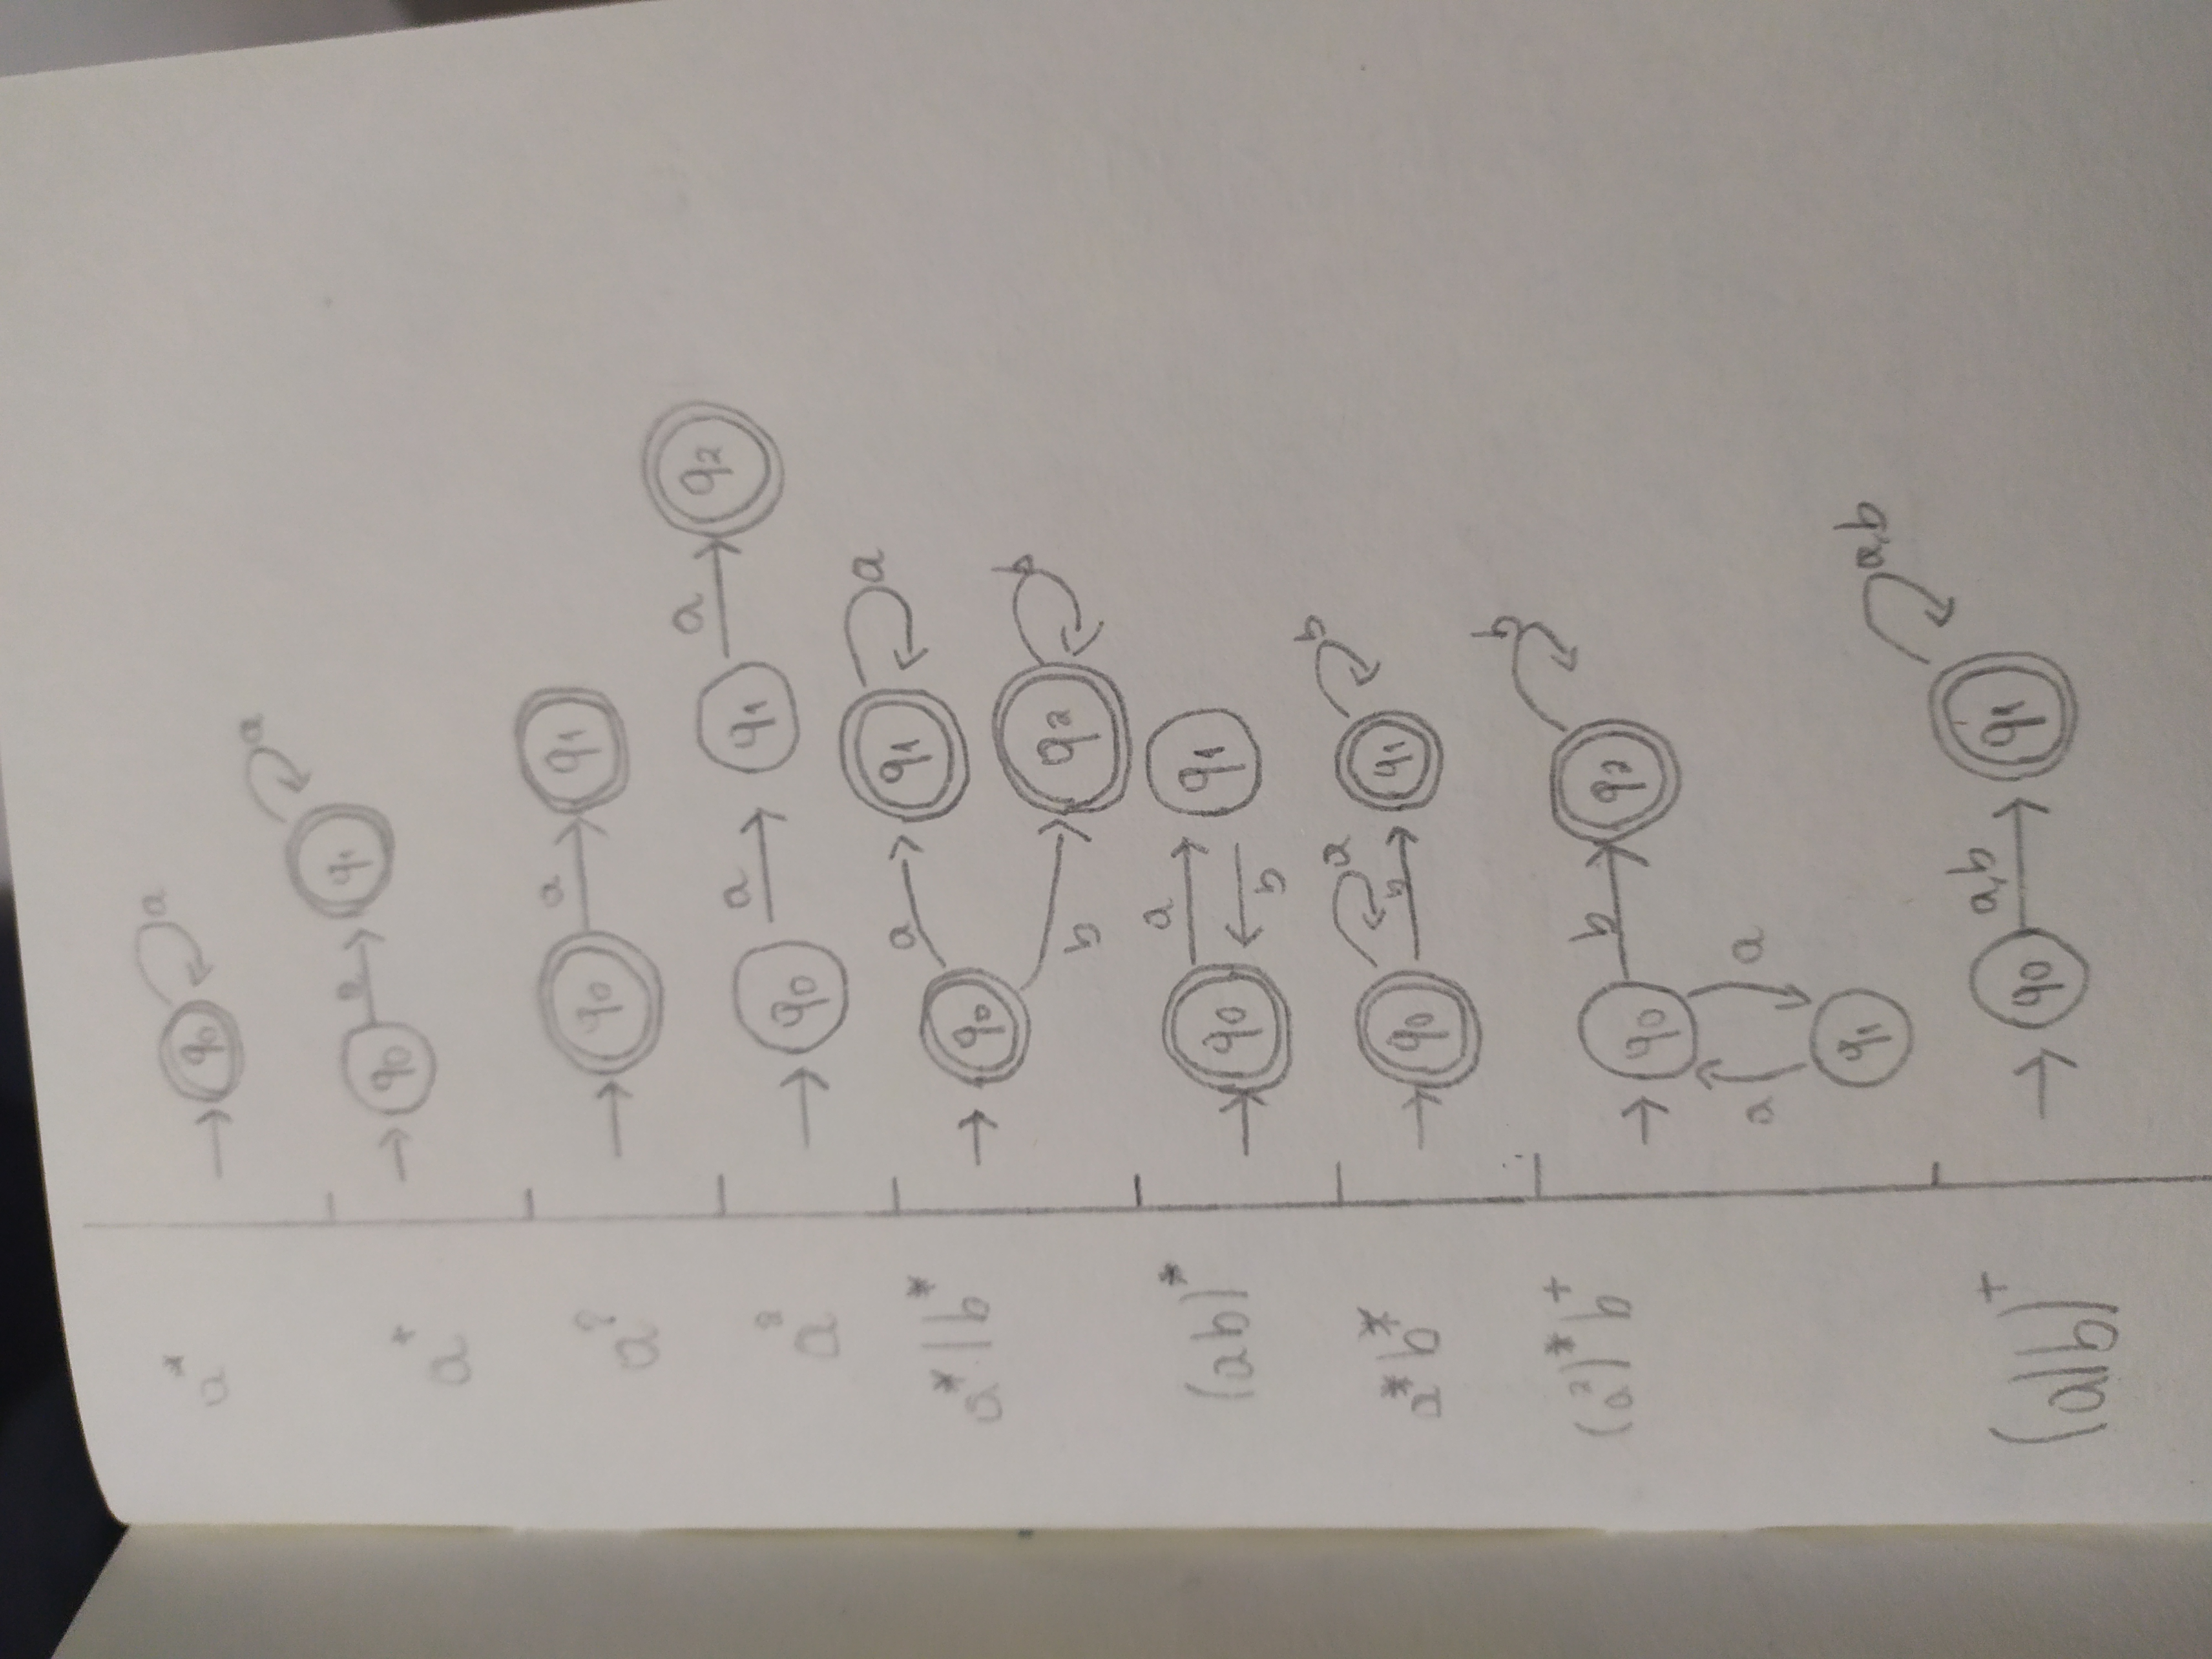 a* q₀ a
a⁺ q₀ a q₁ a
a? q₀ a q₁
a² q₀ a q₁ a q₂
a*|b* q₀ a q₁ a
b q₂ b
(ab)* q₀ a q₁
b
a*b* q₀ a b q₁ b
(a²)*b⁺ q₀ b q₂ b
a a
q₁
(a|b)⁺ q₀ a,b q₁ a,b